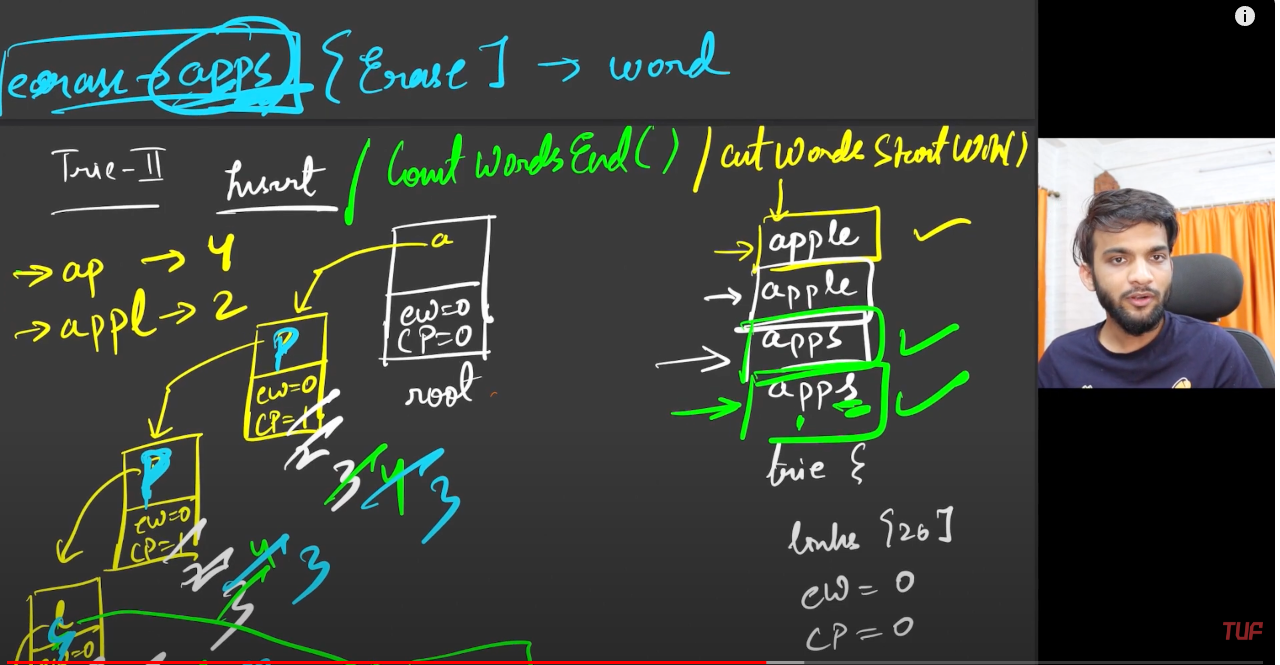 erase → apps {Erase] → word
Trie-II
Insert / Count Words End() / cnt Words Start With()
→ ap → 4
→ appl → 2
a
ew=0
CP=0
root
p
ew=0
CP=1
2
3
4
3
p
ew=0
CP=1
2
3
4
3
l
ew=0
→ apple
→ apple
→ apps
→ apps
trie {
links [26]
ew = 0
CP = 0
i
TUF